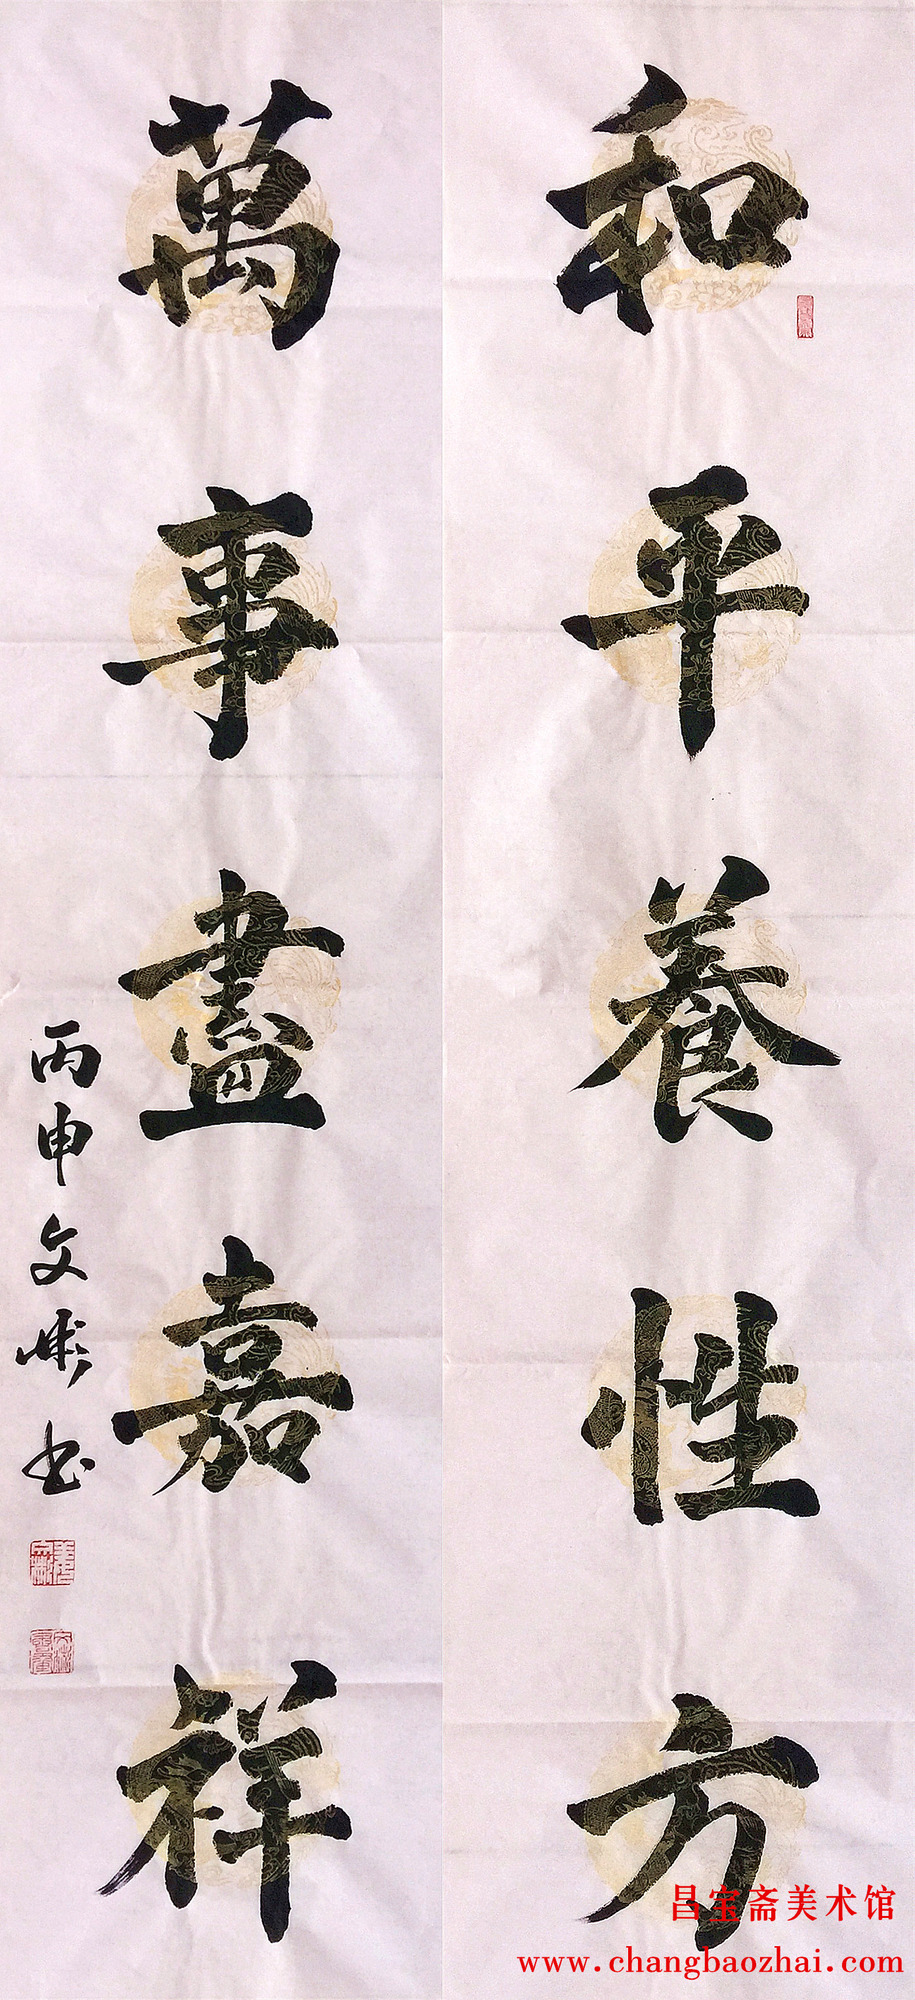 和平養性方
萬事盡嘉祥
丙申文彬书
昌宝斋美术馆
www.changbaozhai.com